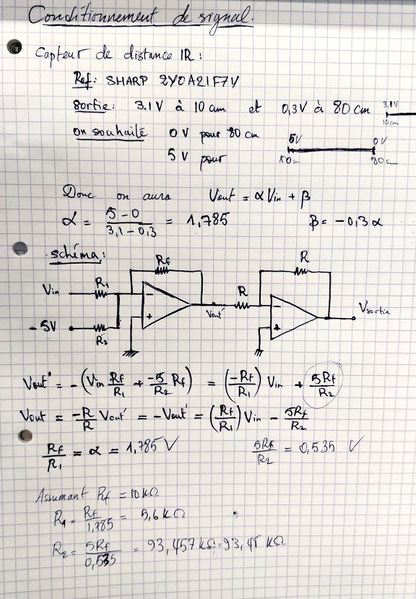 Conditionnement de signal.
Capteur de distance IR:
Ref: SHARP 2Y0A21F7V
sortie: 3.1V à 10cm et 0,3V à 80cm
3.1V
10cm
on souhaite 0V pour 80cm
5V pour
5V 0V
10cm 80cm
Donc on aura Vout = αVin + β
α = (5-0)/(3,1-0,3) = 1,785 β = -0,3α
schéma:
Rf R
Vin R1 - + Vout' R - + Vsortie
-5V R2
Vout' = -(Vin Rf/R1 + -5/R2 Rf) = (-Rf/R1) Vin + 5Rf/R2
Vout = -R/R Vout' = -Vout' = (Rf/R1) Vin - 5Rf/R2
Rf/R1 = α = 1,785 V 5Rf/R2 = 0,535 V
Assumant Rf = 10kΩ
R1 = Rf/1,785 = 5,6 kΩ
R2 = 5Rf/0,535 = 93,457kΩ 93,45 kΩ